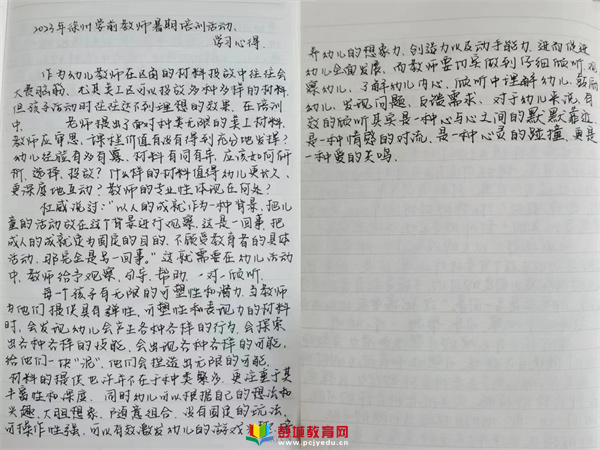 2023年徐州学前教师暑期培训活动、
学习心得.
作为幼儿教师在区角的材料投放中往往会
大费脑筋,尤其美工区以投放多种多样的材料.
但孩子活动时往往达不到理想的效果,在培训
中, 老师提出了面对种类无限的美工材料,
教师应审思:课程价值有没有得到充分地发挥?
幼儿经验有多有寡,材料有同有异,应该如何研
析、选择、投放?什么样的材料值得幼儿更长久、
更深度地互动?教师的专业性体现在何处?
杜威说过:“以人的成就作为一种背景,把儿
童的活动放在这个背景进行观察,这是一回事,把
成人的成就定为固定的目的,不顾受教育者的具体
活动,那完全是另一回事。”这就需要在幼儿活动
中,教师给予观察、引导、帮助、一对一倾听.
每一个孩子有无限的可塑性和潜力,当教师
为他们提供具有弹性、可塑性和表现力的材料
时,会发现幼儿会产生各种各样的行为,会探索
出各种各样的技能,会出现各种各样的可能,
给他们一块“泥”,他们会捏造出无限的可能.
材料的提供也许并不在于种类繁多,更注重于其
丰富性和深度,同时幼儿可以根据自己的想法和
兴趣,大胆想象、随意组合,没有固定的玩法,
可操作性强,可以有效激发幼儿的游戏
养幼儿的想象力、创造力以及动手能力,进而促进
幼儿全面发展,而教师要内早做到仔细倾听,观
察幼儿、了解幼儿内心,倾听中理解幼儿,鼓励
幼儿,发现问题,反馈需求、对于幼儿来说,有
效的倾听其实是一种心与心之间的默默靠近,
是一种情感的对流,是一种心灵的碰撞,更是
一种爱的共鸣.
彭城教育网
www.pcjyedu.cn